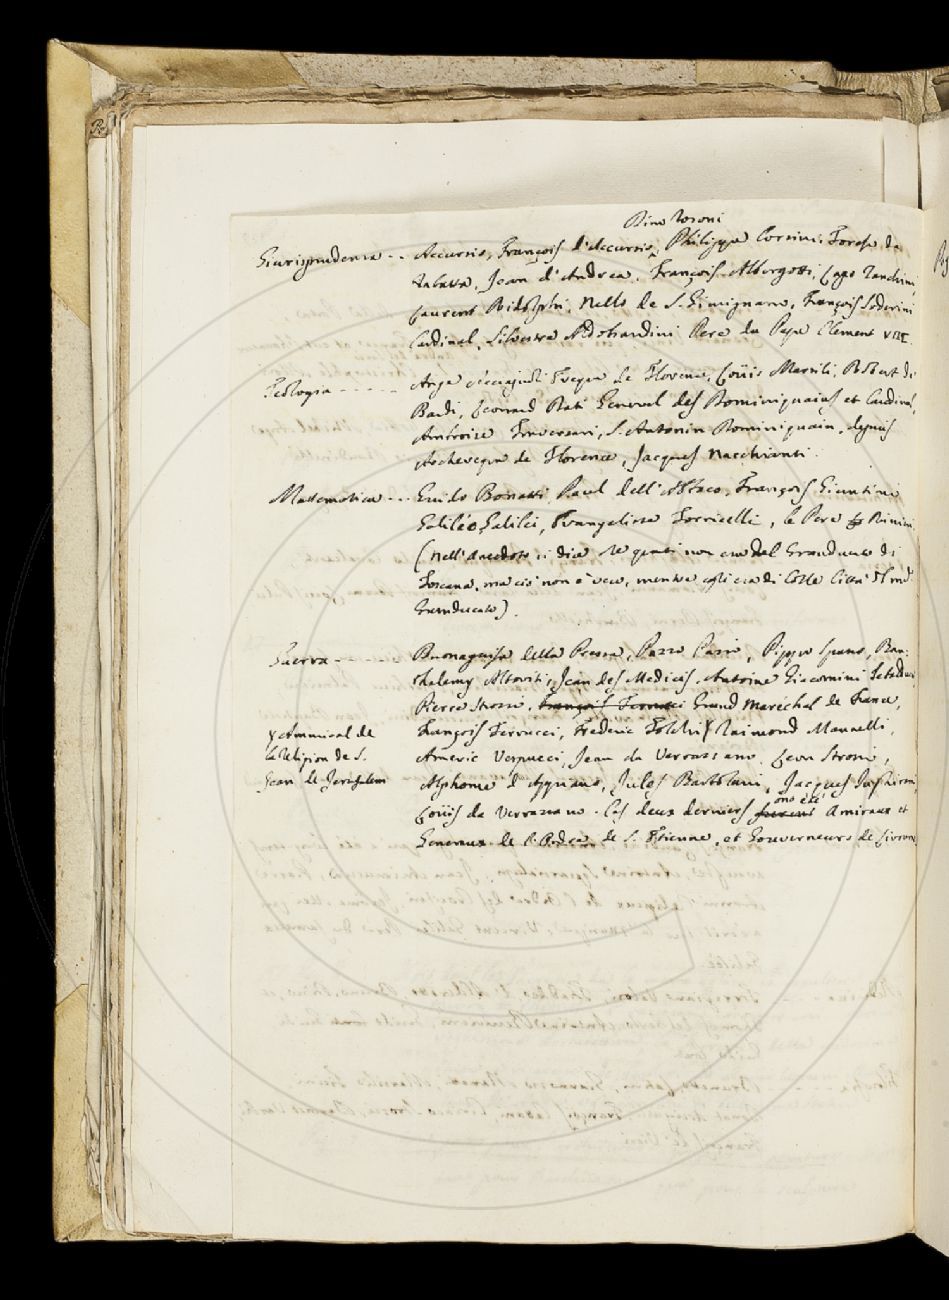 Dino Rosoni
Giurisprudenza -- Accursio, François d'Accursio, Philippe Corsini, Forese da
Rabatta, Jean d'Andrea, François Albergotti, Lapo
Laurent Ridolphi, Nello de S. Gimignano, François Soderini
Cardinal, Silvestre Aldobrandini Pere du Pape Clement VIII.
Teologia ----- Ange Acciajuoli Eveque de Florence, Loüis Marsili, Robert de
Bardi, Leonard Dati General des Dominiquains et Cardinal,
Ambroise Traversari, S. Antonin Dominiquain, depuis
Archeveque de Florence, Jacques Nacchianti.
Matematica --- Guido Bonatti Paul dell'Abbaco, François Giuntini
Galiléo Galilei, Evangeliste Torricelli, le Pere de Rimini
(Nell'aneddoto si dice che questi non era del Granducato di
Toscana, ma ciò non è vero, mentre egli era di Colle Città del md.º
Granducato).
Guerra --- Buonaguisa della Pressa, Pazzo Pazzi, Pippo Spano, Bar-
thelemy Altoviti, Jean des Medicis, Antoine Giacomini Tebalducci,
Pierre Strozzi, François Ferrucci Grand Maréchal de France,
François Ferrucci, Frederic Folchi Raimond Mannelli,
Ammiral de
la Religion de S.
Jean de Jerusalem
Americ Vespucci, Jean da Verrazzano, Leon Strozzi,
Alphonse d'Appiano, Jules Bartolini, Jacques Inghirami,
ont été
Loüis da Verrazzano. Les deux derniers furent Amiraux et
Generaux de l'Ordre de S. Etienne, et Gouverneurs de Livorne